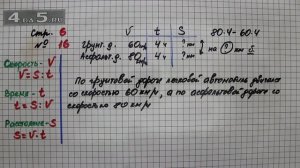 4 на 5.ru
стр. 6
№ 16
V t S
80·4 - 60·4
Грунт. д. 60км/ч 4ч ? км
Асфальт. д. 80км/ч 4ч ? км
на ? км
Скорость - V
V = S : t
Время - t
t = S : V
Расстояние - S
S = V · t
По грунтовой дороге легковой автомобиль двигался
со скоростью 60 км/ч, а по асфальтовой дороге со
скоростью 80 км/ч